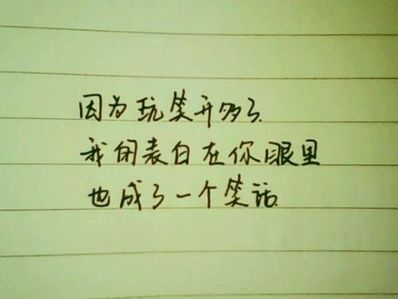 因为玩笑开多了
我的表白在你眼里
也成了一个笑话